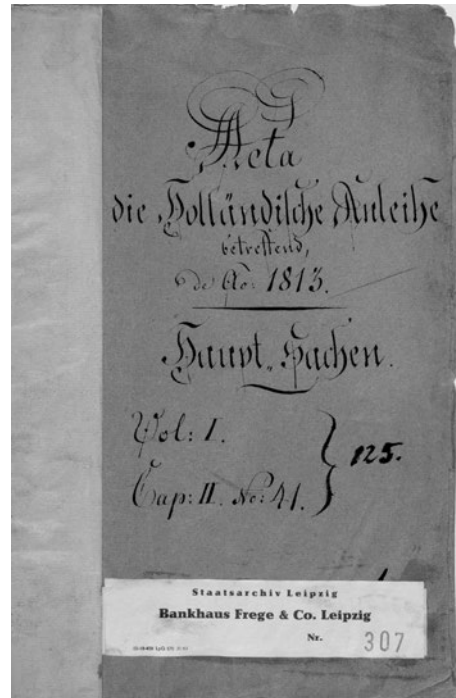 Acta
die Holländische Anleihe
betreffend,
de Ao: 1813.
Haupt-Sachen.
Vol: I.
Cap: II. No: 41.
125.
Staatsarchiv Leipzig
Bankhaus Frege & Co. Leipzig
Nr. 307